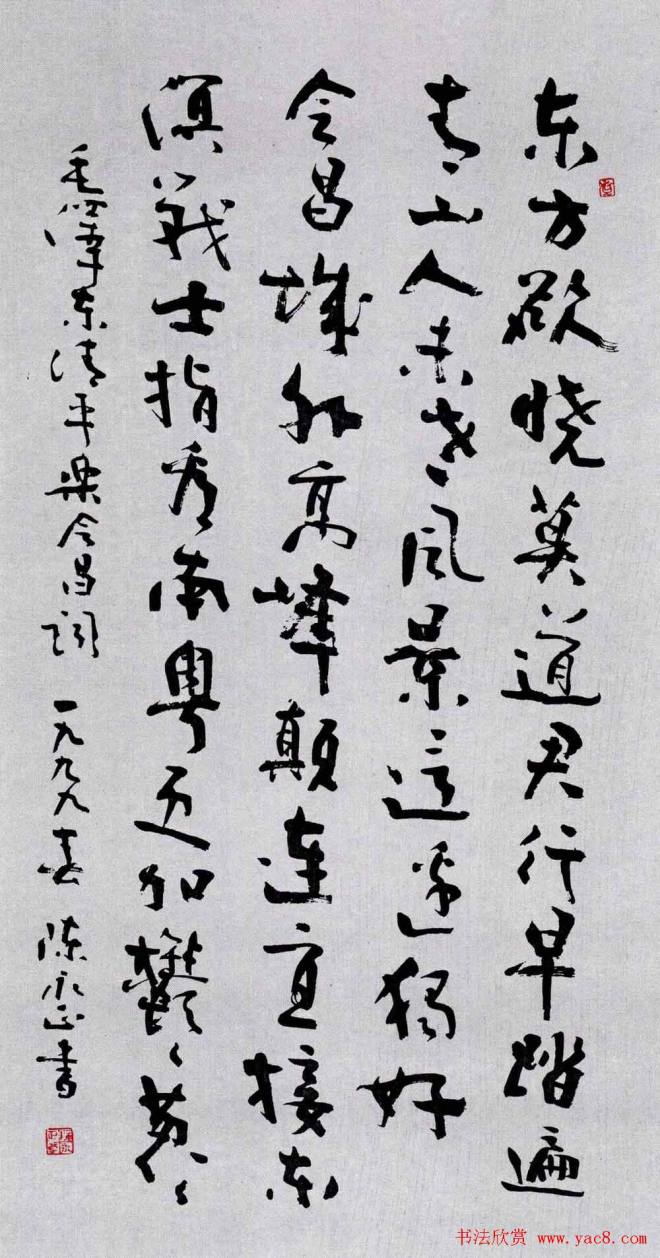 东方欲晓莫道君行早踏遍
青山人未老风景这边独好
会昌城外高峰颠连直接东
溟战士指看南粤更加鬱々葱々
毛泽东清平乐会昌词 一九九九春 陈永正书
书法欣赏 www.yac8.com